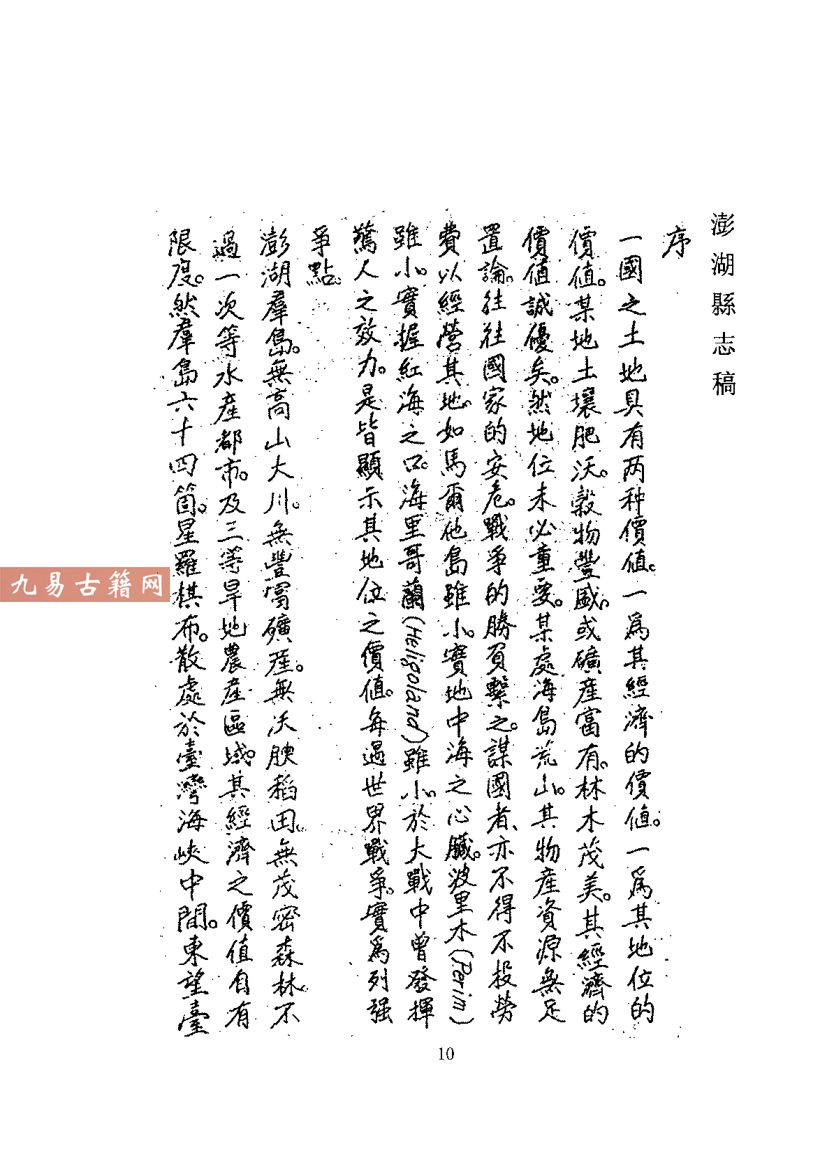 澎湖縣志稿
序
一國之土地具有两种價值。一爲其經濟的價值。一爲其地位的
價值。某地土壤肥沃。穀物豐盛。或礦產富有。林木茂美。其經濟的
價值誠優矣。然地位未必重要。某處海島荒山。其物產資源無足
置論。往往國家的安危。戰爭的勝負繫之。謀國者、亦不得不投勞
費以經營其地。如馬爾他島雖小。實地中海之心臟。波里木(Perim)
雖小。實握紅海之口。海里哥蘭(Heligoland)雖小。於大戰中曾發揮
驚人之效力。是皆顯示其地位之價值。每過世界戰爭。實爲列强
爭點。
澎湖羣島。無高山大川。無豐富礦產。無沃腴稻田。無茂密森林。不
過一次等水產都市。及三等旱地農產區域。其經濟之價值自有
限度。然羣島六十四箇。星羅棋布。散處於臺灣海峽中間。東望臺
九易古籍网
10